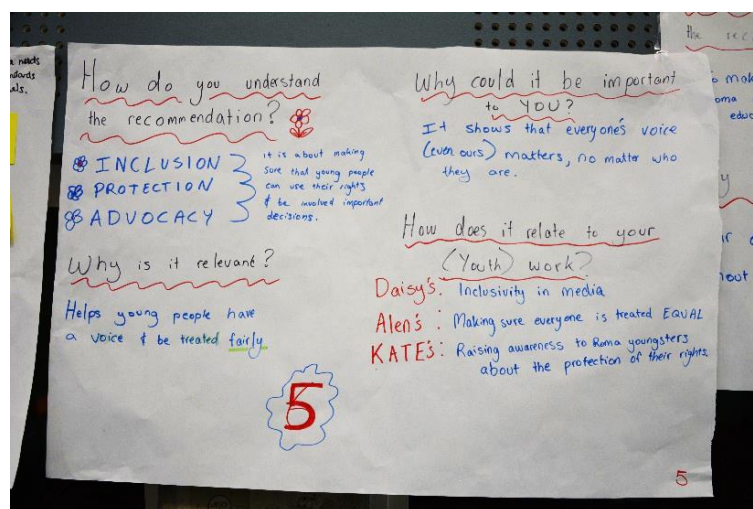 How do you understand
the recommendation?
INCLUSION
PROTECTION
ADVOCACY
it is about making
sure that young people
can use their rights
& be involved important
decisions.
Why is it relevant?
Helps young people have
a voice & be treated fairly
Why could it be important
to YOU?
It shows that everyone's voice
(even ours) matters, no matter who
they are.
How does it relate to your
(Youth) work?
Daisy's: Inclusivity in media
Alen's: Making sure everyone is treated EQUAL
KATE's: Raising awareness to Roma youngsters
about the protection of their rights
5
5
needs
the rec
mak
oma
educ